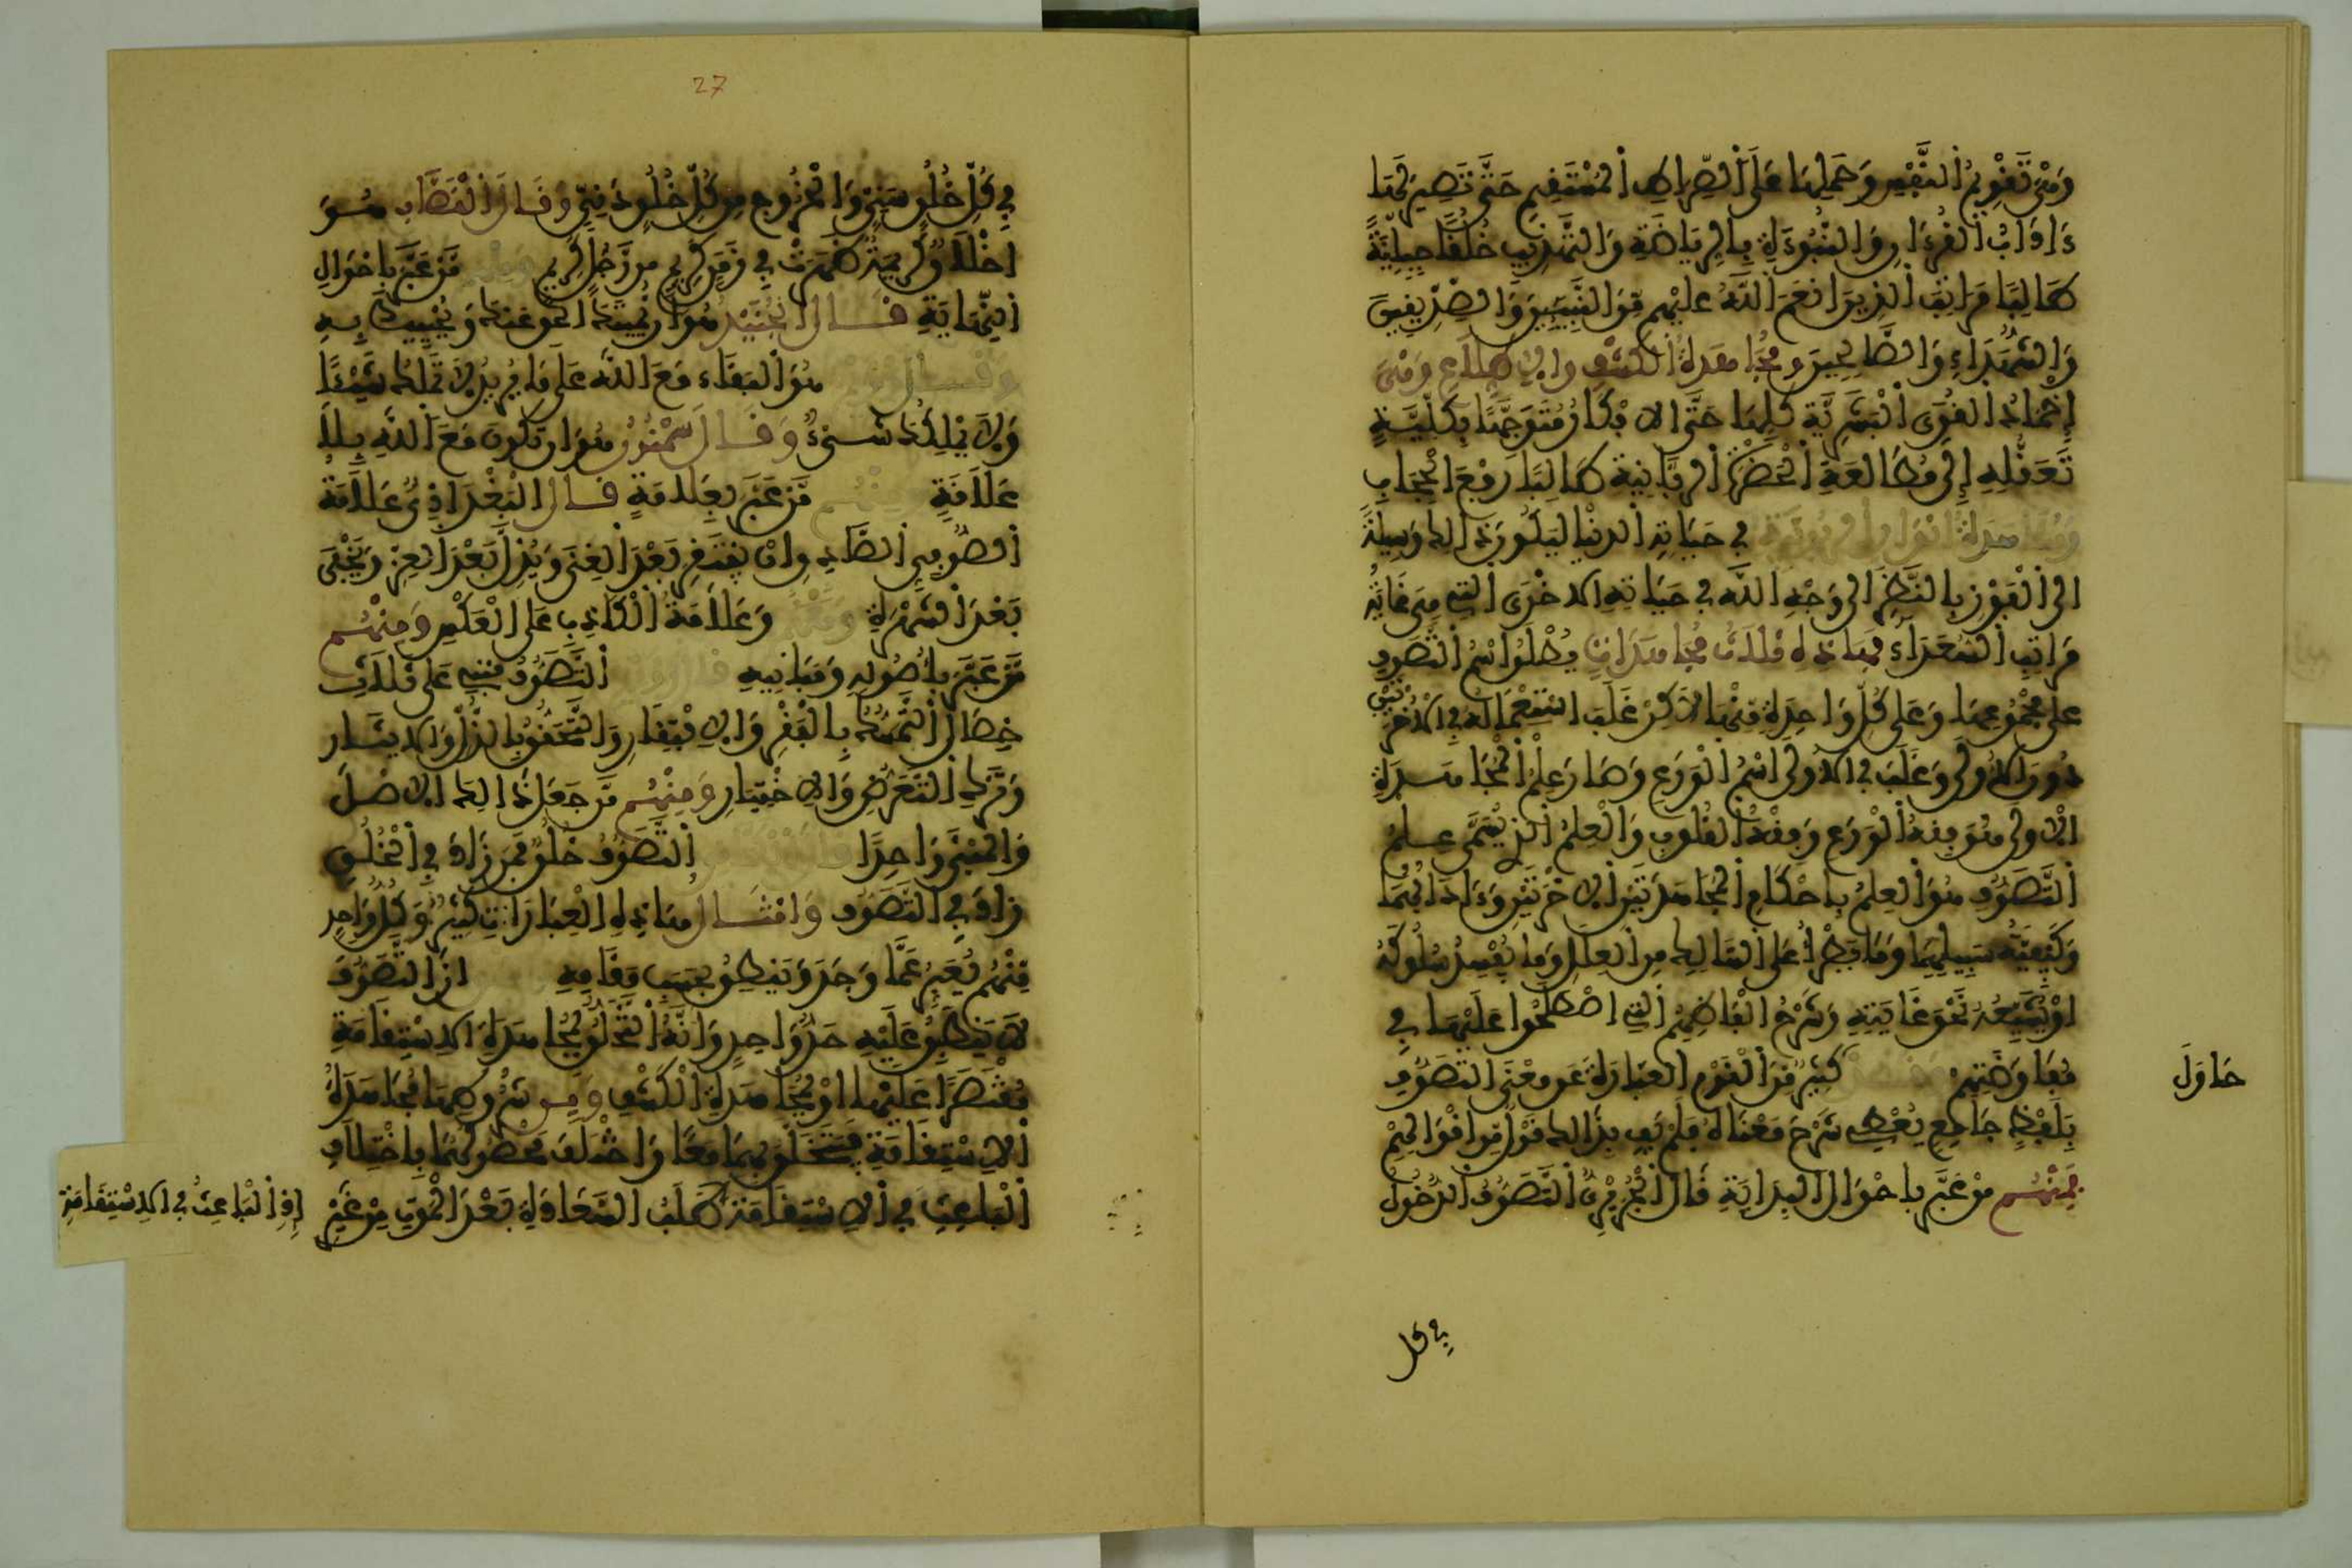 وَهْيَ تَقْوِيمُ النَّفْسِ وَحَمْلِهَا عَلَى الصِّرَاطِ الْمُسْتَقِيمِ حَتَّى تَصِيرَ لَهَا
ءَادَابُ الْقُرْءَانِ وَالنُّبُوءَةِ بِالرِّيَاضَةِ وَالتَّهْذِيبِ خُلُقًا جِبِلِيَّةً
طَالِبًا مَرَاتِبَ الَّذِينَ أَنْعَمَ اللَّهُ عَلَيْهِم مِّنَ النَّبِيئِينَ وَالصِّدِّيقِينَ
وَالشُّهَدَاءِ وَالصَّالِحِينَ وَمُجَاهَدَةُ الْكَشْفِ وَالِاطِّلَاعِ وَهْيَ
إِخْمَادُ الْقُوَى الْبَشَرِيَّةِ كُلِّهَا حَتَّى الْأَفْكَارِ مُتَوَجِّهًا بِكُلِّيَّةِ
تَعَقُّلِهِ إِلَى مُطَالَعَةِ الْحَضْرَةِ الرَّبَّانِيَّةِ طَالِبًا رَفْعَ الْحِجَابِ
وَمُشَاهَدَةَ أَنْوَارِ الرُّبُوبِيَّةِ فِي حَيَاتِهِ الدُّنْيَا لِيَكُونَ ذَالِكَ وَسِيلَةً
إِلَى الْفَوْزِ بِالنَّظَرِ إِلَى وَجْهِ اللَّهِ فِي حَيَاتِهِ الْأُخْرَى الَّتِي هِيَ غَايَةُ
مَرَاتِبِ السُّعَدَاءِ فَهَاذِهِ ثَلَاثُ مُجَاهَدَاتٍ يُطْلَقُ اسْمُ التَّصَوُّفِ
عَلَى مَجْمُوعِهَا وَعَلَى كُلِّ وَاحِدَةٍ مِنْهَا لَاكِنْ غَلَبَ اسْتِعْمَالُهُ فِي الْأُخْرَتَيْنِ
دُونَ الْأُولَى وَغَلَبَ فِي الْأُولَى اسْمُ الْوَرَعِ وَصَارَ عِلْمُ الْمُجَاهَدَةِ
الْأُولَى هُوَ فِقْهُ الْوَرَعِ وَفِقْهُ الْقُلُوبِ وَالْعِلْمُ الَّذِي يُسَمَّى عِلْمُ
التَّصَوُّفِ هُوَ الْعِلْمُ بِأَحْكَامِ الْمُجَاهَدَتَيْنِ الْأُخْرَتَيْنِ وَءَادَابُهُمَا
وَكَيْفِيَّةُ سَبِيلِهِمَا وَمَا يَطْرَأُ عَلَى السَّالِكِ مِنَ الْعِلَلِ وَمَا يُفْسِدُ سُلُوكَهُ
أَوْ يُشَيِّعُهُ نَحْوَ غَايَتِهِ وَشَرْحُ أَلْفَاظِهِمُ الَّتِي اصْطَلَحُوا عَلَيْهَا فِي
مُفَاوَضَتِهِم كَثِيرٌ مِّنَ الْقَوْمِ الْعِبَارَةَ عَن مَعْنَى التَّصَوُّفِ
بِلَفْظٍ جَامِعٍ يُعْطِي شَرْحَ مَعْنَاهُ فَلَمْ يَفِ بِذَالِكَ قَوْلٌ مِّنْ أَقْوَالِهِمْ
فَمِنْهُم مَنْ عَبَّرَ بِأَحْوَالِ الْبِدَايَةِ قَالَ الْجُرَيْرِيُّ التَّصَوُّفُ الدُّخُولُ
حَاوَلَ
فِي كل
27
فِي كُلِّ خُلُقٍ سَنِيٍّ وَالْخُرُوجُ مِن كُلِّ خُلُقٍ دَنِيٍّ وَقَالَ الْقَصَّابُ هُوَ
أَخْلَاقٌ كَرِيمَةٌ ظَهَرَتْ فِي زَمَنٍ كَرِيمٍ مِن رَّجُلٍ كَرِيمٍ مَّنْ عَبَّرَ بِأَحْوَالِ
النِّهَايَةِ قَالَ الْجُنَيْدُ هُوَ أَن يُمِيتَكَ الْحَقُّ عَنْكَ وَيُحْيِيكَ بِهِ
وَقَالَ هُوَ الْبَقَاءُ مَعَ اللَّهِ عَلَى مَا يُرِيدُ لَا تَمْلِكُ شَيْئًا
وَلَا يَمْلِكُكَ شَيْءٌ وَقَالَ سَمْنُونُ هُوَ أَن تَكُونَ مَعَ اللَّهِ بِلَا
عَلَاقَةٍ وَمِنْهُم مَّنْ عَبَّرَ بِعَلَامَةٍ قَالَ الْبَغْدَادِيُّ عَلَامَةُ
الصُّوفِيِّ الصَّادِقِ أَنْ يَفْتَقِرَ بَعْدَ الْغِنَى وَيُذَلَّ بَعْدَ الْعِزِّ وَيَخْفَى
بَعْدَ الشُّهْرَةِ وَعَلَامَةُ الْكَاذِبِ عَلَى الْعَكْسِ وَمِنْهُم
مَّنْ عَبَّرَ بِأُصُولِهِ وَمَبَانِيهِ قَالَ رُوَيْمٌ التَّصَوُّفُ مَبْنِيٌّ عَلَى ثَلَاثِ
خِصَالٍ التَّمَسُّكُ بِالْفَقْرِ وَالِافْتِقَارِ وَالتَّحَقُّقُ بِالْبَذْلِ وَالْإِيثَارِ
وَتَرْكِ التَّعَرُّضِ وَالِاخْتِيَارِ وَمِنْهُم مَّن جَعَلَ ذَالِكَ الْأَصْلَ
وَالْمَبْنَى وَاحِدًا التَّصَوُّفُ خُلُقٌ فَمَن زَادَ فِي الْخُلُقِ
زَادَ فِي التَّصَوُّفِ وَأَمْثَالُ هَاذِهِ الْعِبَارَاتِ كَثِيرٌ وَكُلُّ وَاحِدٍ
مِّنْهُم يُعَبِّرُ عَمَّا وَجَدَ وَيَنْطِقُ بِحَسَبِ مَقَامِهِ أَنَّ التَّصَوُّفَ
لَا يَنْطَبِقُ عَلَيْهِ حَدٌّ وَاحِدٌ وَأَنَّهُ التَّخَلُّقُ بِمُجَاهَدَةِ الِاسْتِقَامَةِ
مُقْتَصَرًا عَلَيْهَا أَوْ بِمُجَاهَدَةِ الْكَشْفِ وَمِن شُرُوطِهَا مُجَاهَدَةُ
الِاسْتِقَامَةِ فَيَتَخَلَّقُ بِهِمَا مَعًا وَاخْتَلَفَ بِاخْتِلَافِ
الْبَاعِثِ فِي الِاسْتِقَامَةِ طَلَبُ السَّعَادَةِ بَعْدَ الْمَوْتِ مِنْ غَيْرِ
إِذِ الْبَاعِثُ فِي الِاسْتِقَامَةِ